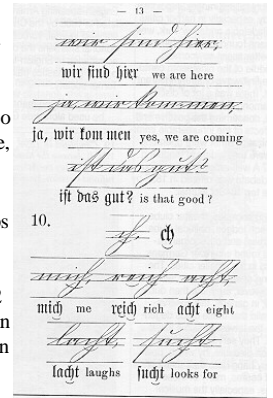 — 13 —
wir sind hier,
wir sind hier we are here
ja, wir kommen,
ja, wir kom men yes, we are coming
ist das gut?
ist das gut? is that good?
10.
ch, ch
mich, reich acht,
mich me reich rich acht eight
lacht, sucht
lacht laughs sucht looks for